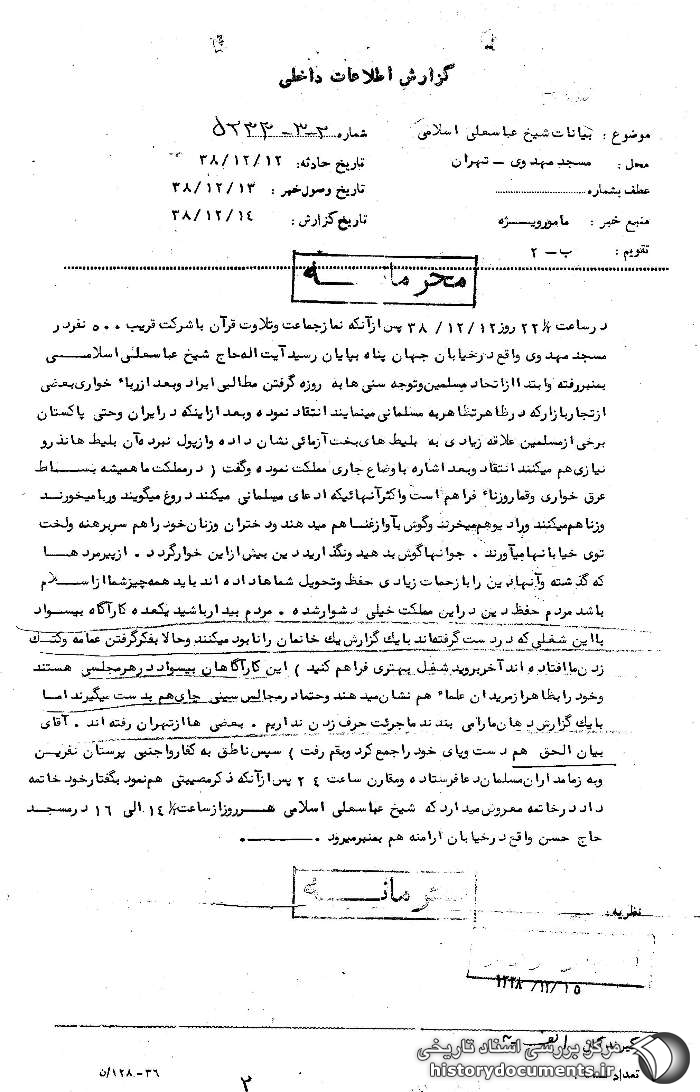 گزارش اطلاعات داخلی
موضوع : بیانات شیخ عباسعلی اسلامی
شماره
محل : مسجد مهدوی – تهران
تاریخ حادثه: ۳۸/۱۲/۱۲
عطف بشماره
تاریخ وصول خبر : ۳۸/۱۲/۱۳
منبع خبر : مامور ویـــژه
تاریخ گزارش : ۳۸/۱۲/۱۴
تقویم : ب – ۲
محرمانــه
در ساعت ۲۲ روز ۳۸/۱۲/۱۲ پس از آنکه نماز جماعت و تلاوت قرآن با شرکت قریب ۵۰۰ نفر در
مسجد مهدوی واقع در خیابان جهان پناه بپایان رسید آیت اله حاج شیخ عباسعلی اسلامــی
بمنبر رفته و ابتدا از اتحاد مسلمین و توجه سنی ها به روزه گرفتن مطالبی ایراد و بعد از رباء خواری بعضی
از تجار بازار که در ظاهر تظاهر به مسلمانی مینمایند انتقاد نموده و بعد از اینکه در ایران و حتی پاکستان
برخی از مسلمین علاقه زیادی به بلیط های بخت آزمائی نشان داده و از پول نبرده آن بلیط ها نذر و
نیازی هم میکنند انتقاد و بعد اشاره با وضاع جاری مملکت نموده و گفت ( در مملکت ما همیشه بســاط
عرق خواری و قمار و زناء فراهم است و اکثر آنهائیکه ادعای مسلمانی میکنند دروغ میگویند و ربا میخورنــد
و زنا هم میکنند و رادیو هم میخرند و گوش بآواز غنا هم میدهند و دختران و زنان خود را هم سر برهنه و لخت
توی خیابانها میآورند . جوانها گوش بدهید و نگذارید دین بیش از این خوار گردد . از پیر مردهــا
که گذشته و آنها دین را با زحمات زیادی حفظ و تحویل شما ها داده اند باید همه چیز شما از اســلام
باشد مردم حفظ دین در این مملکت خیلی دشوار شده . مردم بیدار باشید یکعده کارآگاه بیسواد
با این شغلی که در دست گرفته‌اند با یک گزارش یک خانمان را نابود میکنند و حالا بفکر گرفتن عمامه و کتــک
زدن ما افتاده اند آخر بروید شغل بهتری فراهم کنید ) این کارآگاهان بیسواد در هر مجلسی هستند
و خود را بظاهر از مریدان علماء هم نشان میدهند و حتما در مجالس سینی چای هم بدست میگیرند امــا
با یک گزارش دهان ما را می بندند ما جرئت حرف زدن نداریم . بعضی ها از تهران رفته اند . آقای
بیان الحق هم دست و پای خود را جمع کرد و بقم رفت ) سپس ناطق به کفار و اجنبی پرستان نفریــن
و به زمامداران مسلمان دعا فرستاده و مقارن ساعت ۲۴ پس از آنکه ذکر مصیبتی هم نمود بگفتار خود خاتمه
داد در خاتمه معروض میدارد که شیخ عباسعلی اسلامی هــر روز از ساعت ۱۴ الی ۱۶ در مسجــد
حاج حسن واقع در خیابان ارامنه هم بمنبر میرود .
نظریه :
۱۳۳۸/۱۲/۱۵
گیرندگان
مرکز بررسی اسناد تاریخی
historydocuments.ir
۳۶-۱۲۸/ن
۲